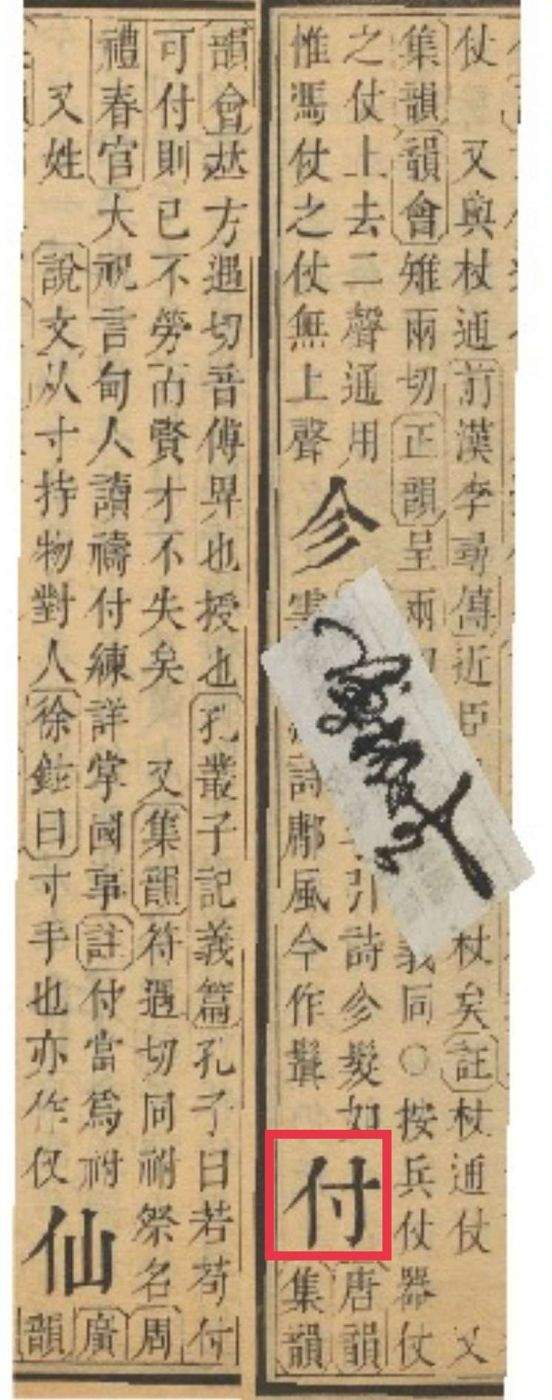 仗 又與杖通前漢李尋傳近臣 杖矣註杖通仗 又
集韻韻會雉兩切正韻呈兩 義同○按兵仗器仗
之仗上去二聲通用
惟馮仗之仗無上聲
㐱
引詩㐱髮如
詩鄘風今作鬒
付
唐韻
集韻
韻會𠀤方遇切音傅畀也授也孔叢子記義篇孔子曰若苟付
可付則已不勞而賢才不失矣 又集韻符遇切同祔祭名周
禮春官大祝言甸人讀禱付練詳掌國事註付當爲祔
又姓 說文从寸持物對人徐鉉曰寸手也亦作仅
仙
廣
韻